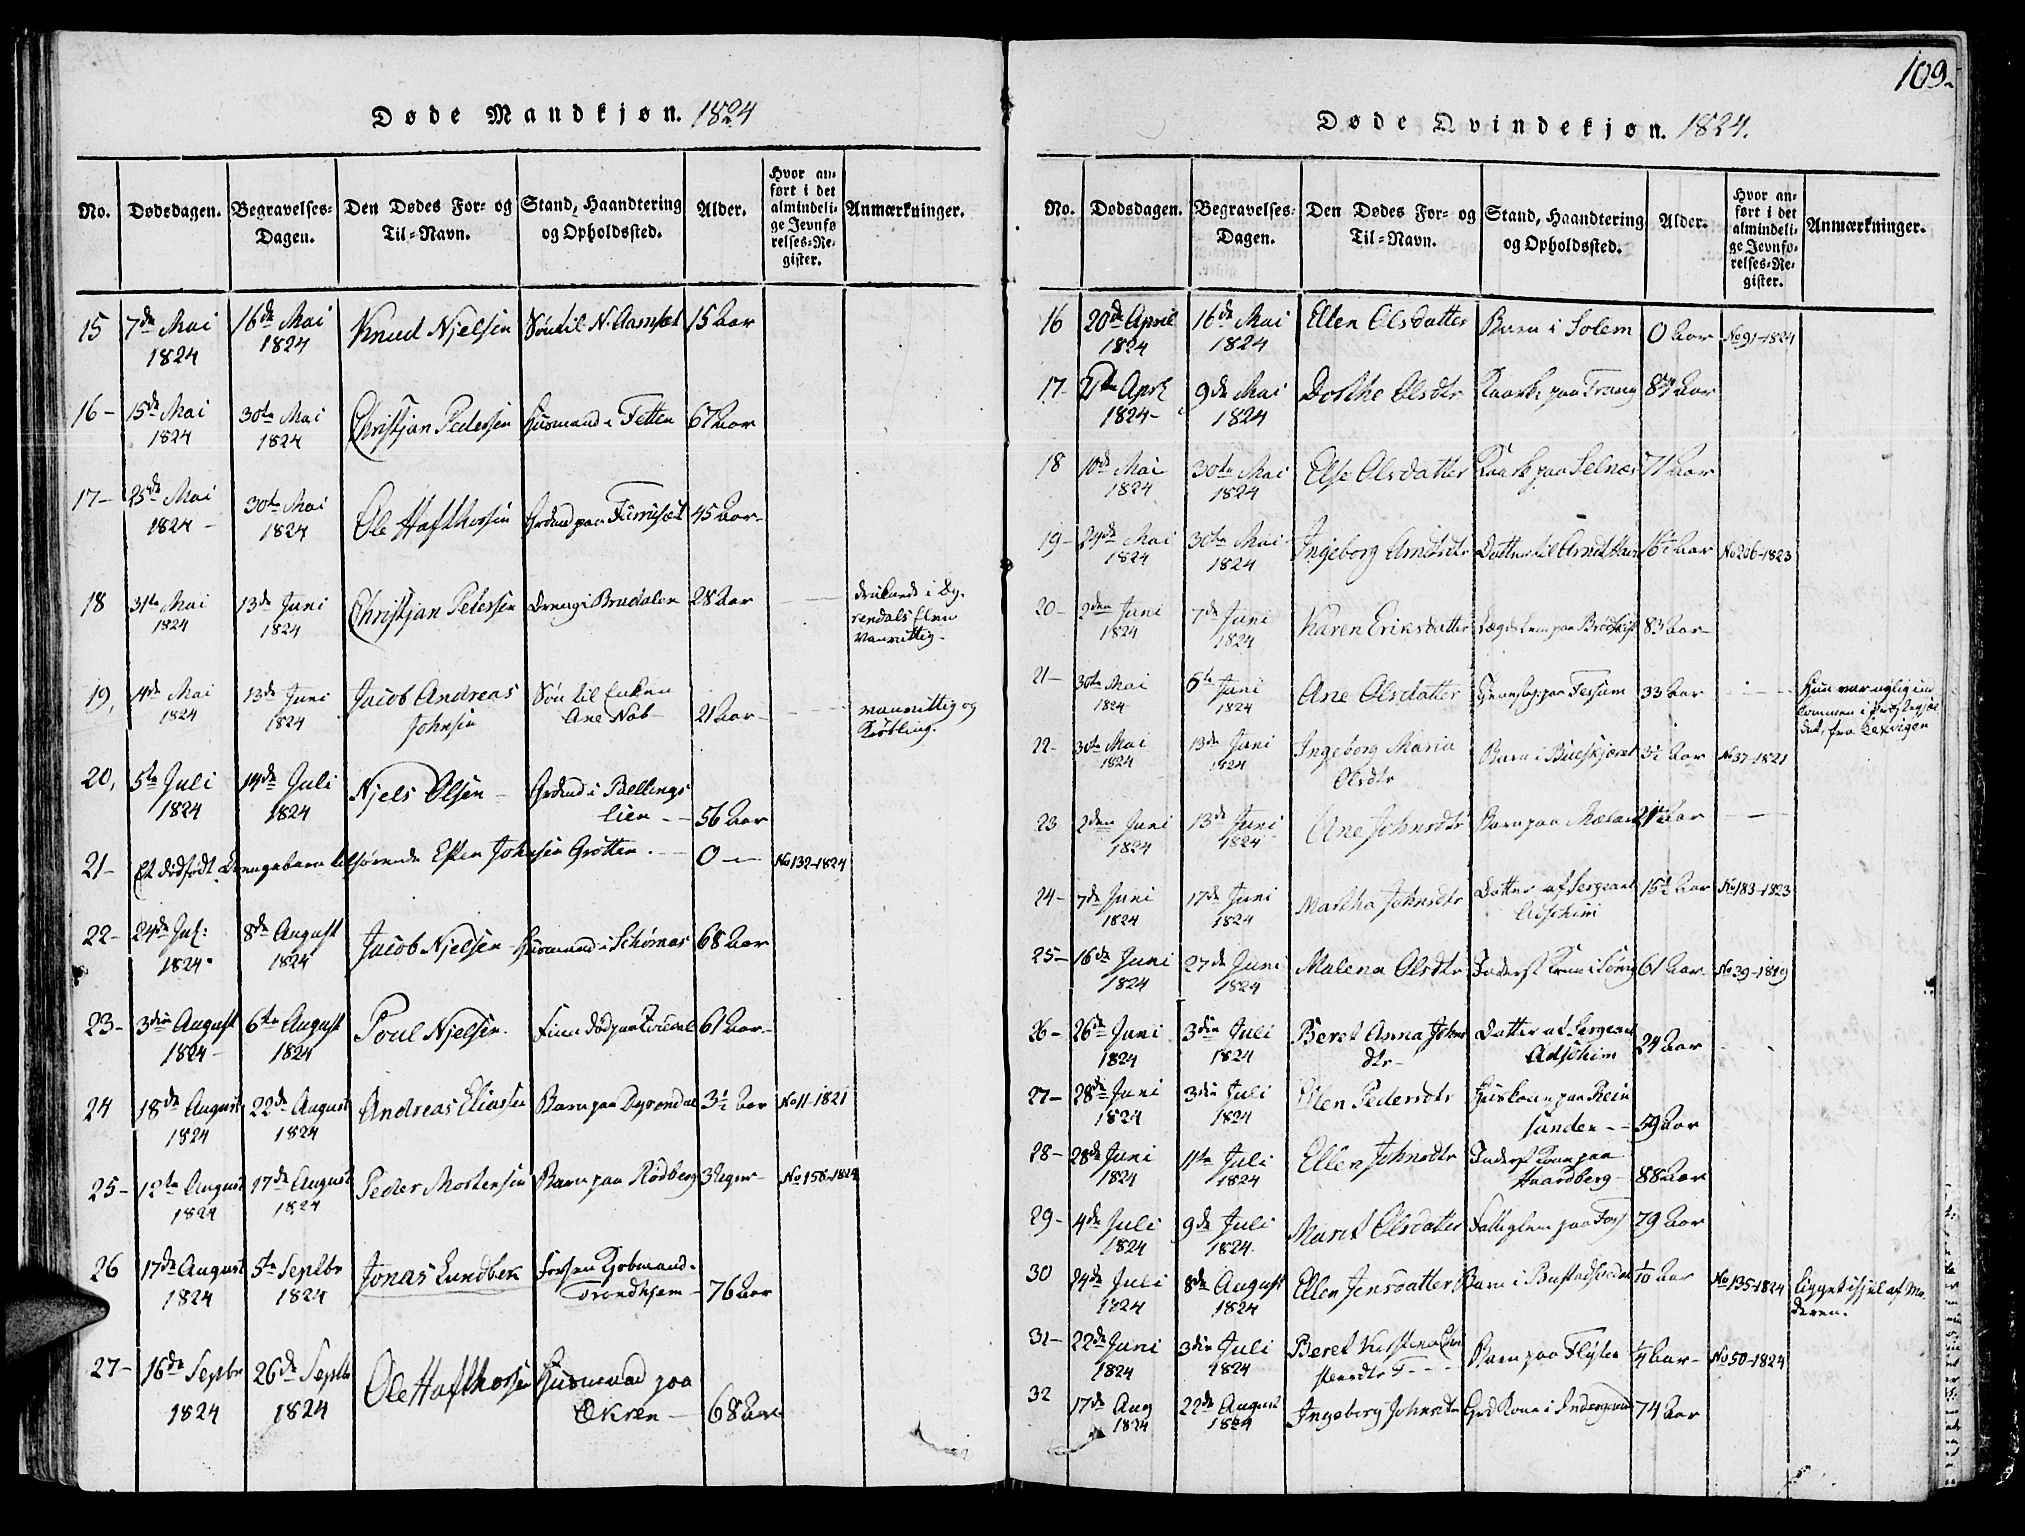 109.
Døde Mandkjøn. 1824
No. Dødedagen. Begravelses-Dagen. Den Dødes For- og Til-Navn. Stand, Haandtering og Opholdssted. Alder. Hvor anført i det almindelige Jevnførelses-Register. Anmærkninger.
15 7de Mai 1824 16de Mai 1824 Knud Njelsen Søn til N. Aamset 15 Aar
16- 15de Mai 1824 30te Mai 1824 Christjan Pedersen Huusmand i Fetten 67 Aar
17- 25de Mai 1824- 30te Mai 1824 Ole Hafthorsen Grdmd paa 45 Aar-
18 31te Mai 1824 13de Juni 1824 Christjan Petersen Dreng i Brudalen 28 Aar druknede i Dy-
rendals Elven
vanvittig-
19, 4de Mai 1824 13de Juni 1824 Jacob Andreas Johnsen Søn til Enken Ane Nob- 21 Aar- vanvittig og
Krøbling.
20, 5te Juli 1824 14de Juli 1824 Njels Olsen- Grdmd i Bellings
lien-- 56 Aar
21- Et dødfødt Drengebarn tilhørende Esten Johnsen Grøtten. 0-- No 132-1824
22- 24de Jul: 1824. 8de August 1824 Jacob Njelsen Huusmand i 68 Aar
23- 3die August 1824- 6te August 1824 Poul Njelsen. Finn død paa 61 Aar-
24 18de August 1824 22de August 1824 Andreas Eliassen Barn paa Dyrendal 3½ Aar No 11-1821
25- 12te August 1824 17de August 1824 Peder Mortensen Barn paa Rødberg 3 Uger- No 158-1824
26 17de August 1824 5te Septbr 1824 Jonas Lundbek Forhen Kjøbmand-
Trondhjem- 76 Aar
27- 16de Septbr 1824 26de Septbr 1824 Ole Hafthorsen Huusmand paa
Økren- 68 Aar
Døde Qvindekjøn. 1824.
No. Dødsdagen. Begravelses-Dagen. Den Dødes For- og Til-Navn. Stand, Haandtering og Opholdssted. Alder. Hvor anført i det almindelige Jevnførelses-Register. Anmærkninger.
16 20de April 1824 16de Mai 1824 Ellen Olsdatter Barn i Solem 0 Aar No 91-1824
17- 21de Apr: 1824- 9de Mai 1824 Dorthe Olsdtr paa 84 Aar
18 10de Mai 1824 30te Mai 1824 Else Olsdatter paa Selnæs 71 Aar
19- 24de Mai 1824 30te Mai 1824 Ingeborg Arntsdtr Datter til Arndt Aar No 206-1823
20- 2den Juni 1824 7de Juni 1824 Karen Eriksdatter Lægdslem paa 83 Aar-
21- 30te Mai 1824 6te Juni 1824 Ane Olsdatter paa Fessum 33 Aar Hun var nylig ind
kommen i Præstegjæl
det, fra Lexvigen
22- 30te Mai 1824 13de Juni 1824 Ingeborg Maria
Olsdtr Barn i Bueskjæret 3½ Aar No 37-1821
23 2den Juni 1824 13de Juni 1824 Ane Johnsdtr Barn paa Aar --
24- 7de Juni 1824 17de Juni 1824 Martha Johnsdtr Datter af Sergeant
Adschim 1½ Aar No 183-1823
25- 16de Juni 1824 27de Juni 1824 Malena Olsdtr Inderst Kone i 61 Aar No 39-1819
26- 26de Juni 1824 3die Juli 1824 Beret Anna Johns
dtr- Datter af Sergeant
Adschim 24 Aar
27- 28de Juni 1824 3die Juli 1824 Ellen Pedersdtr Huuskone paa Rein
sanden-- 59 Aar
28- 28de Juni 1824 11te Juli 1824 Ellen Johnsdtr Inderst Kone paa
Haardberg- 88 Aar
29- 4de Juli 1824 9de Juli 1824. Marit Olsdatter Fattiglem paa 79 Aar
30 24de Juli 1824 8de August 1824 Ellen Jensdatter Barn i 1/10 Aar No 135-1824 ligget ihjel af Mo-
deren.
31- 22de Juni 1824 3die Juli 1824 Beret Kirstina Chri
stensdtr Barn paa Flyten ¼ Aar- No 50-1824
32 17de Aug 1824 22de August 1824 Ingeborg Johnsdtr Grd Kone i 74 Aar